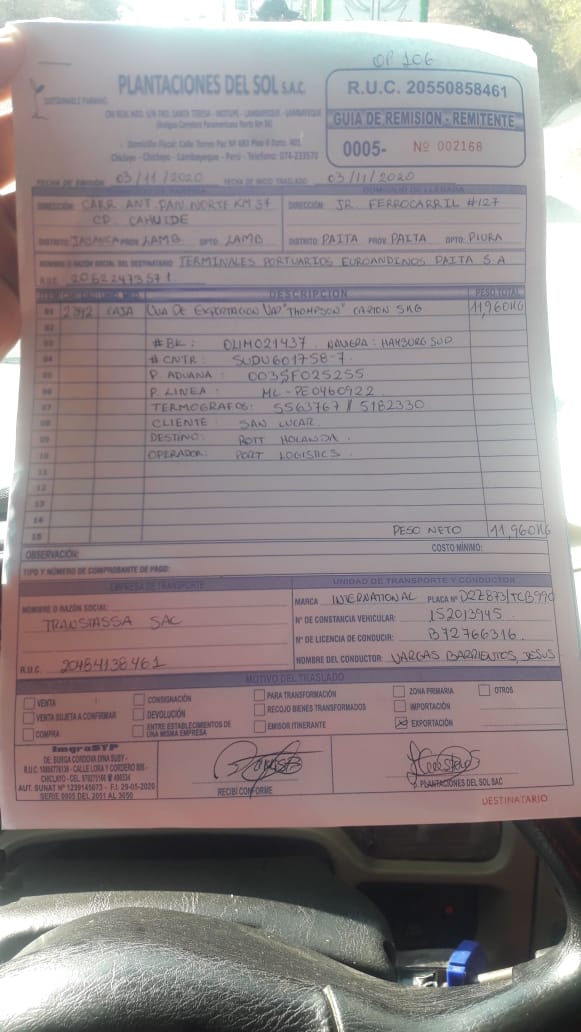 OP 106
PLANTACIONES DEL SOL S.A.C.
SUSTAINABLE FARMING
R.U.C. 20550858461
GUIA DE REMISION - REMITENTE
0005- Nº 002168
Domicilio Fiscal: Calle Torres Paz Nº 683 Piso 6 Dpto. 601
Chiclayo - Chiclayo - Lambayeque - Perú - Telefono: 074-233570
FECHA DE EMISIÓN 03/11/2020 FECHA DE INICIO TRASLADO 03/11/2020
DOMICILIO DE LLEGADA
DIRECCIÓN: CARR. ANT. PAN. NORTE KM 37
CD. CAHUIDE
DISTRITO: JAYANCA PROV. LAMB. DPTO. LAMB
DIRECCIÓN: JR. FERROCARRIL #127
DISTRITO: PAITA PROV. PAITA DPTO: PIURA
NOMBRE O RAZÓN SOCIAL DEL DESTINATARIO TERMINALES PORTUARIOS EUROANDINOS PAITA S.A
20522473571
DESCRIPCION PESO TOTAL
01 CAJA UVA DE EXPORTACION VAR "THOMPSON" CARTON 5KG 11,960KG
02
03 # BK: NAVIERA: HAMBURG SUD
04 # CNTR: SUDU601758-7
05 P. ADUANA: 0035F025255
06 P. LINEA: ML-PE0460922
07 TERMOGRAFOS: 5563767 // 5182330
08 CLIENTE: SAN LUCAR
09 DESTINO: ROTT HOLANDA.
10 OPERADOR: PORT LOGISTICS.
11
12
13
14
15 PESO NETO 11,960KG
OBSERVACIÓN: COSTO MÍNIMO:
TIPO Y NÚMERO DE COMPROBANTE DE PAGO:
EMPRESA DE TRANSPORTE
NOMBRE O RAZÓN SOCIAL:
TRANSTASSA SAC
R.U.C. 20484138461
UNIDAD DE TRANSPORTE Y CONDUCTOR
MARCA INTERNATIONAL PLACA Nº D2Z873/TCB990
Nº DE CONSTANCIA VEHICULAR: 152013945
Nº DE LICENCIA DE CONDUCIR: B72766316
NOMBRE DEL CONDUCTOR: VARGAS BARRIENTOS, JESUS
MOTIVO DEL TRASLADO
VENTA
VENTA SUJETA A CONFIRMAR
COMPRA
CONSIGNACIÓN
DEVOLUCIÓN
ENTRE ESTABLECIMIENTOS DE
UNA MISMA EMPRESA
PARA TRANSFORMACIÓN
RECOJO BIENES TRANSFORMADOS
EMISOR ITINERANTE
ZONA PRIMARIA
IMPORTACIÓN
EXPORTACIÓN
OTROS
ImgraSYP
DE: BURGA CORDOVA DINA SUSY -
CHICLAYO - CEL.
AUT. SUNAT Nº 1239145673 - F.I. 29-05-2020
SERIE 0005 DEL 2051 AL 3050
RECIBÍ CONFORME
PLANTACIONES DEL SOL SAC
DESTINATARIO